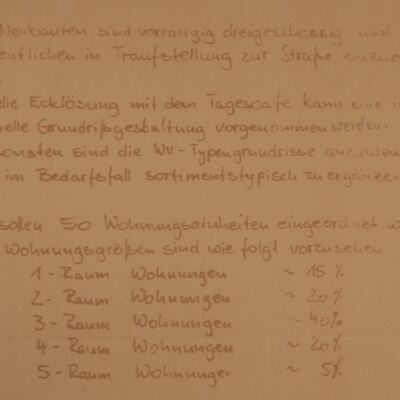 Neubauten sind vorrangig dreigeschossig und
in Traufstellung zur Straße
die Ecklösung mit dem Tagescafe kann eine
Grundrißgestaltung vorgenommen werden.
sind die WV-Typengrundrisse
im Bedarfsfall sortimentstypisch zu ergänzen
sollen 50 Wohnungseinheiten eingeordnet
Wohnungsgrößen sind wie folgt vorzusehen
1-Raum Wohnungen ~ 15%
2-Raum Wohnungen ~ 20%
3-Raum Wohnungen ~ 40%
4-Raum Wohnungen ~ 20%
5-Raum Wohnungen ~ 5%